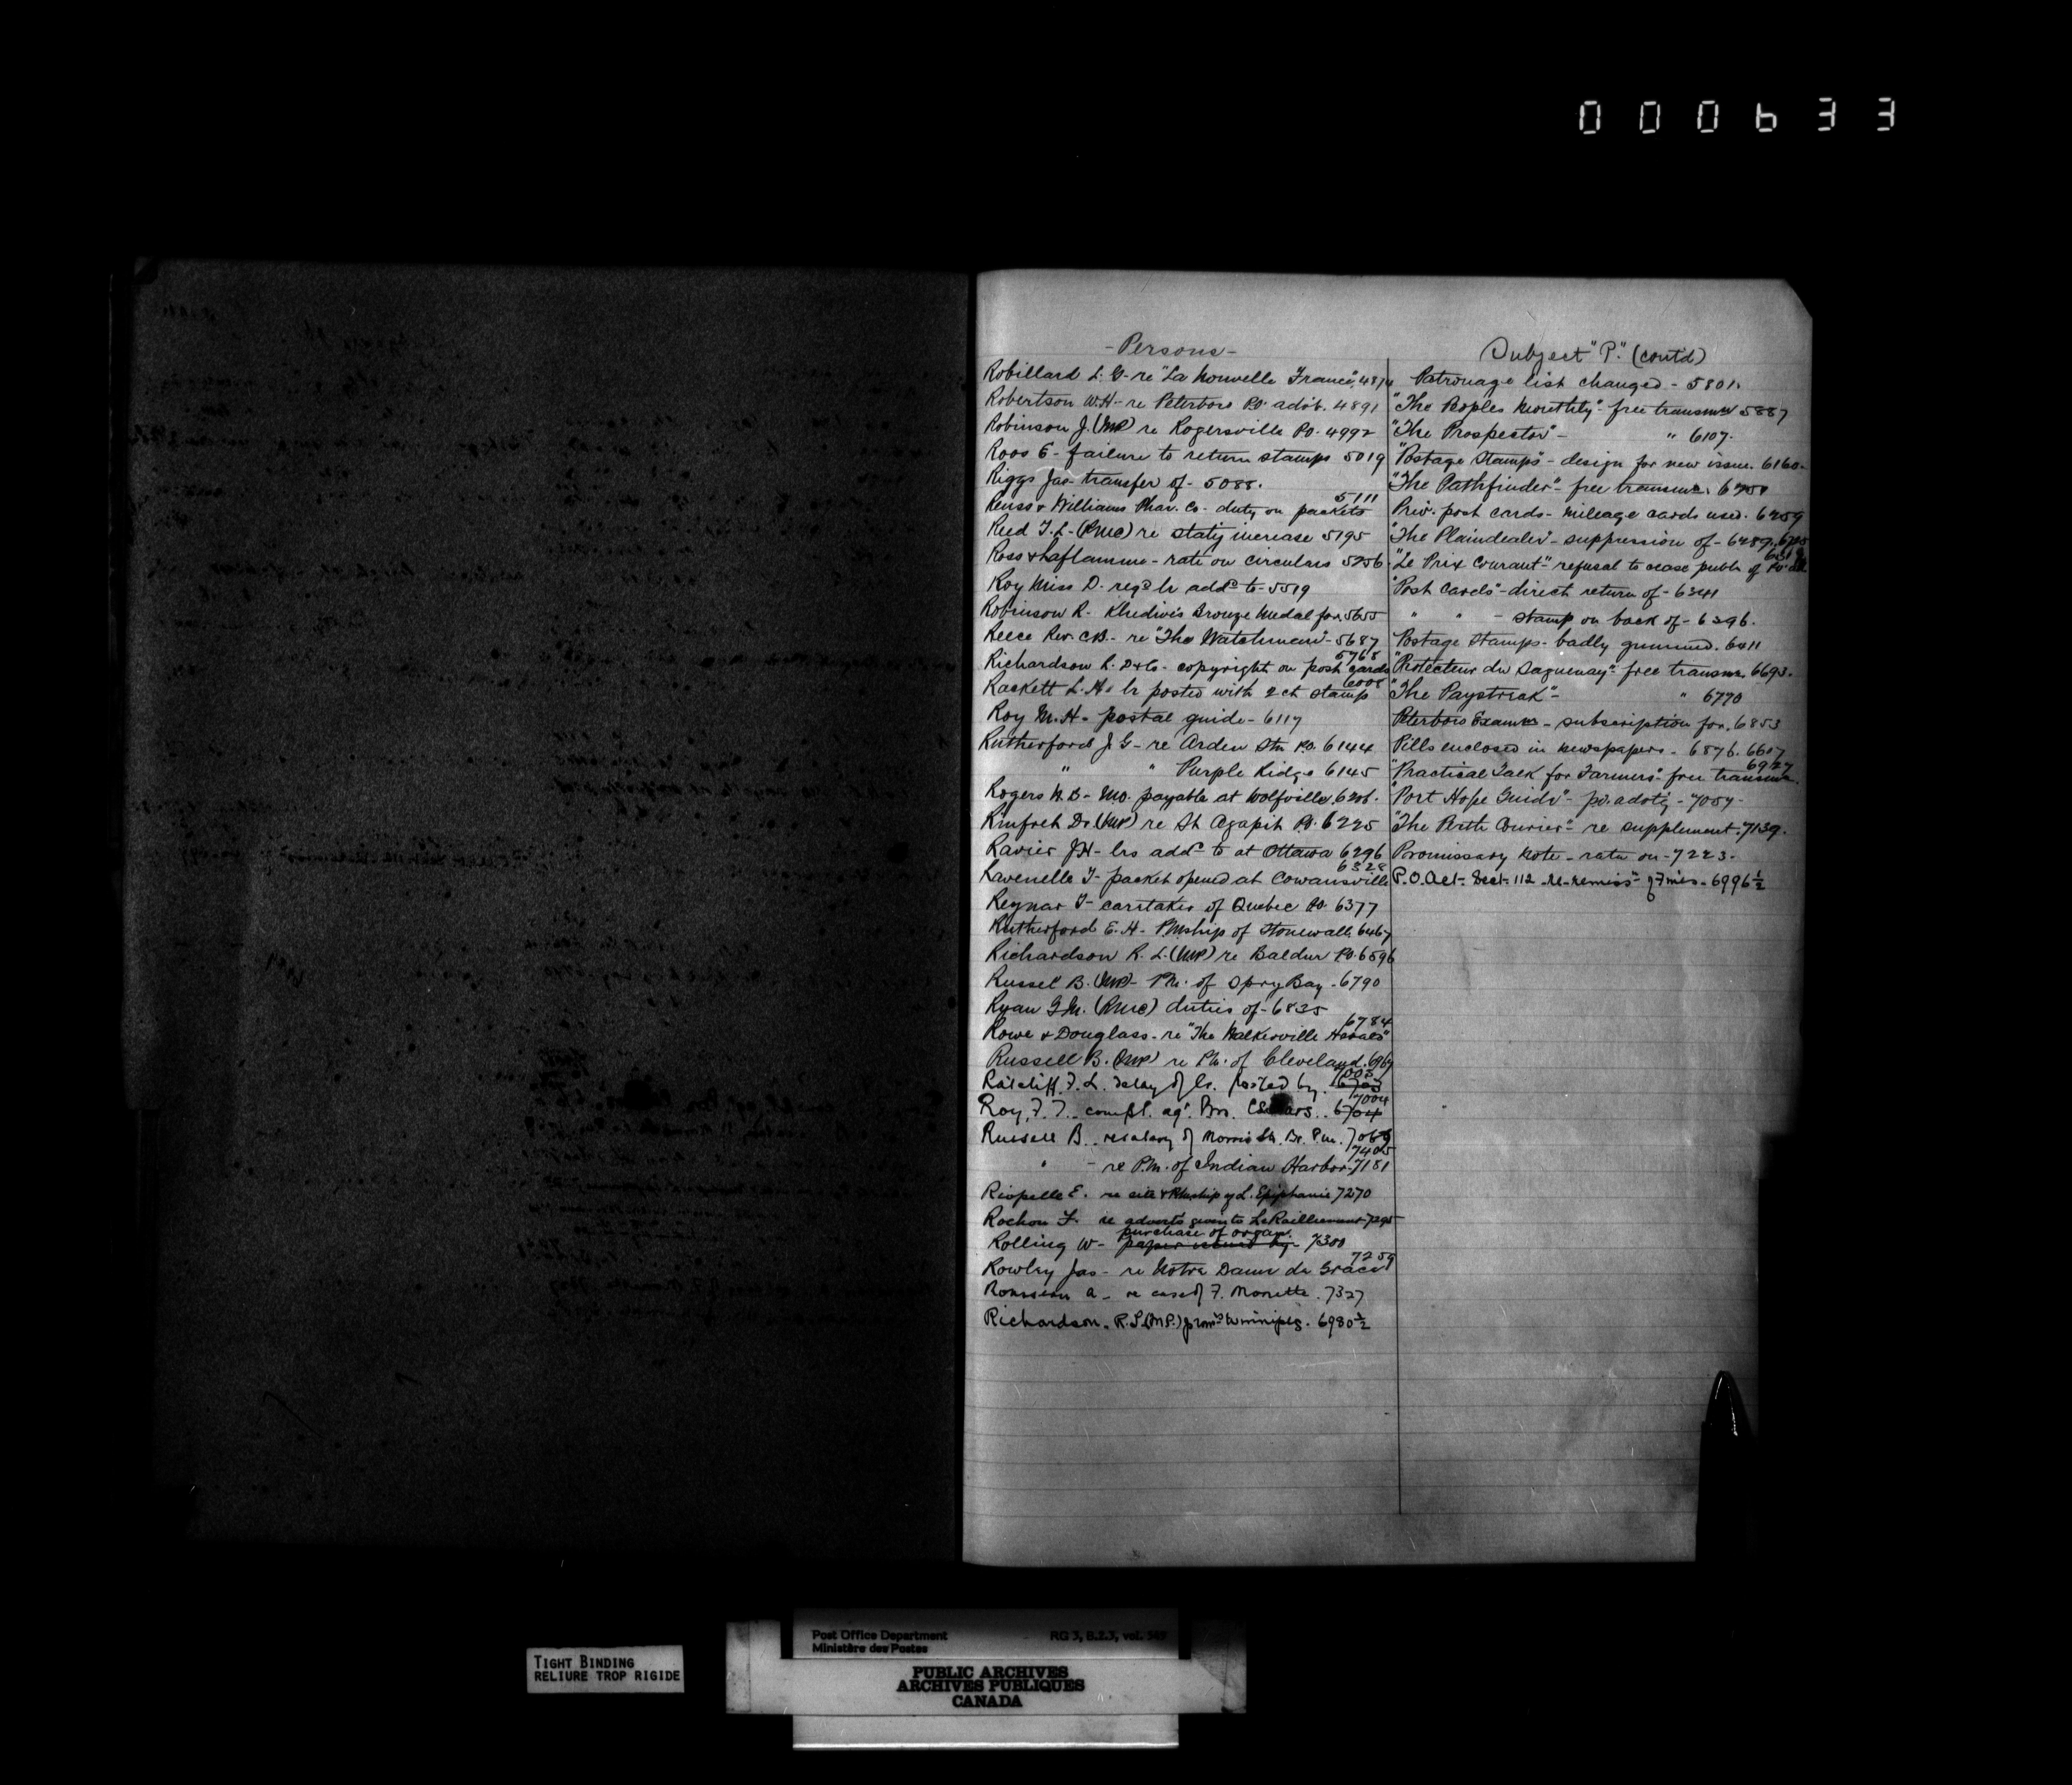 000633
- Persons -
Robillard L. G. re "La Nouvelle France" 4874
Robertson W. H. - re Peterboro P.O. advts. 4891
Robinson J. (MP) re Rogersville P.O. 4992
Roos E - failure to return stamps 5019
Riggs Jas - transfer of - 5088.
5111
Williams Phar. Co. duty on packets
Reid T. L. (RMC) re increase 5195
Ross & Laflamme - rate on circulars 5256.
Roy Miss D. regd lr addd to - 5519
Robinson R. Khedive's Bronze Medal for. 5655
Reece Rev. C. B. - re "The Watchman" - 5687
5768
Richardson R. D & Co - copyright on post cards
6008
Rackett L. H. - lr posted with 2 ct stamp
Roy M. H. - postal guide - 6117
Rutherford J. G - re Arden Stn P.O. 6144
" " Purple Ridge 6145
Rogers W. B - MO. payable at Wolfville. 6206.
Rinfret Dr (MP) re St Agapit P.O. 6225
Ravier J H - lrs addd to at Ottawa 6296
6328
Ravenelle T - packet opened at Cowansville
Reynar T - caretaker of Quebec P.O. 6377
Rutherford E. H - PMship of Stonewall. 6467
Richardson R. L. (MP) re Baldur P.O. 6596
Russel B. (MP) - PM. of Spry Bay - 6790
Ryan G M. (RMC) duties of - 6835
6784
Rowe & Douglass - re "The Walkerville Herald"
Russell B. (MP) re PM. of Cleveland. 6967
7003
Ratcliff F. L. delay of lr. posted by. 6703
7004
Roy, F. T. compt. agt. Bros. 6704
Russell B. re salary of Morris St. Br. P.M. 7069
7405
" - re P.M. of Indian Harbor - 7181
Riopelle E. re site & PMship of L. Epiphanie 7270
Rochon F. re advert's given to Le Ralliement - 7295
purchase of organ.
Rolling W - paper issued by - 7300
7259
Rowley Jas - re Notre Dame de Grace
Rousseau A - re case of F. Monette. 7327
Richardson. R. L. (M.P.) promn Winnipeg. 6980½
Subject "P." (cont'd)
Patronage list changed - 5801.
"The Peoples Monthly" - free transmn 5887
"The Prospector" - " 6107.
"Postage Stamps" - design for new issue. 6160.
"The Pathfinder" - free transmn.
Priv. post cards - mileage cards used. 6259
"The Plaindealer" - suppression of - 6289, 6705
6319
"Le Prix Courant" - refusal to cease publn of P.O. ad
"Post Cards" - direct return of - 6341
" " - stamp on back of - 6396.
Postage Stamps - badly gummed. 6411
"Protecteur du Saguenay" - free transmn. 6693.
"The Paystreak" - " 6770
Peterboro Examr - subscription for. 6853
Pills enclosed in newspapers - 6876. 6607
6927
"Practical Talk for Farmers" - free transmn.
"Port Hope Guide" - p.o. advtg - 7057 -
"The Perth Courier" - re supplement. 7139.
Promissory Note - rate on - 7223.
P.O. Act - Sect. 112 - re remissn of Fines - 6996½
TIGHT BINDING
RELIURE TROP RIGIDE
Post Office Department RG 3, B.2.3, vol. 549
Ministère des Postes
PUBLIC ARCHIVES
ARCHIVES PUBLIQUES
CANADA